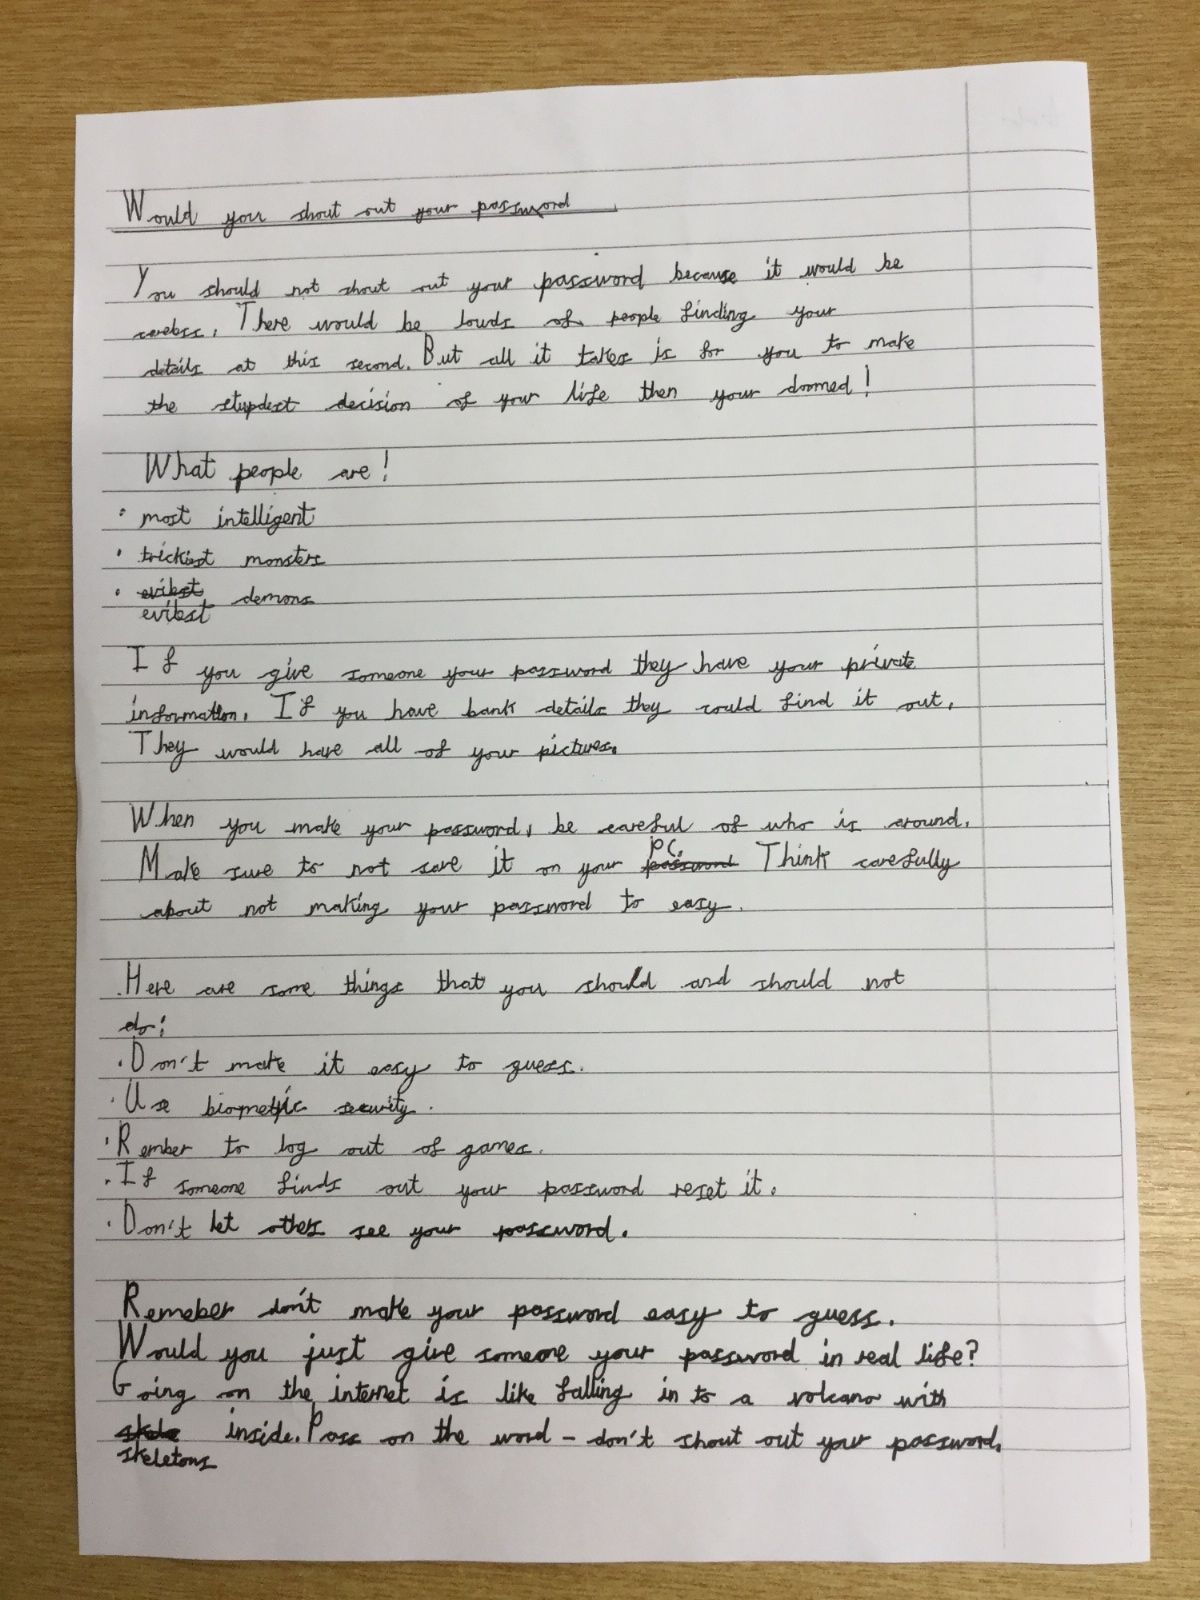 Would you shout out your password
You should not shout out your password because it would be
There would be louds of people finding your
details at this second. But all it takes is for you to make
the stupdest decision of your life then your doomed!
What people are!
• most intelligent
• trickiest monsters
• demons
evilest
If you give someone your password they have your private
information. If you have bank details they could find it out.
They would have all of your pictures.
When you make your password, be careful of who is around.
Make sure to not save it on your PC. Think carefully
about not making your password to easy.
Here are some things that you should and should not
do:
• Don't make it easy to guess.
• Use biometric security.
• Rember to log out of games.
• If someone finds out your password reset it.
• Don't let others see your password.
Remeber don't make your password easy to guess.
Would you just give someone your password in real life?
Going on the internet is like falling in to a volcano with
skeletons inside. Pass on the word - don't shout out your password.